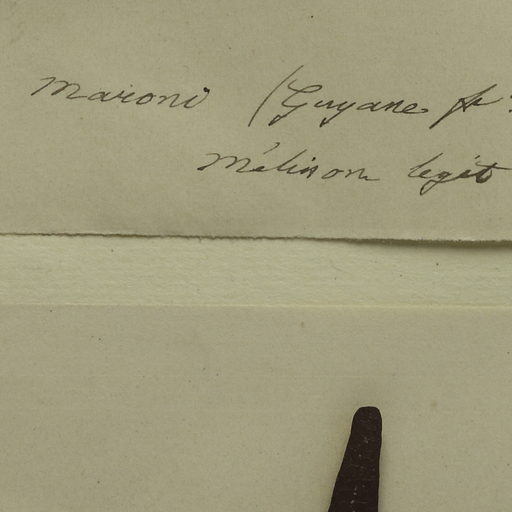 Maroni (Guyane fr
Mélinon legit